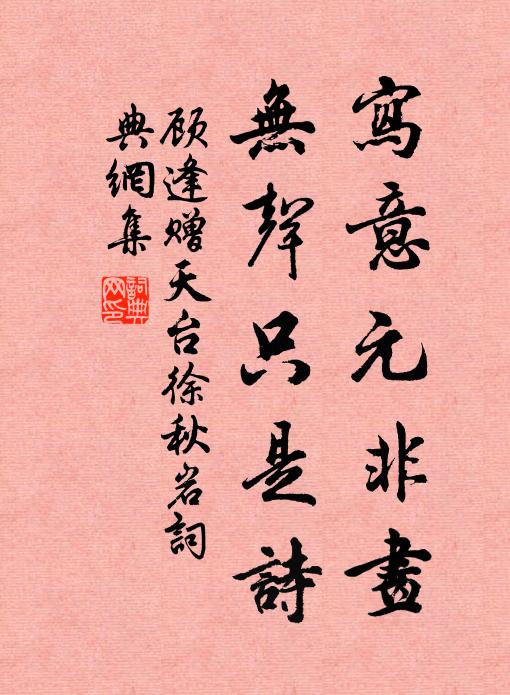 寫意元非畫
無聲只是詩
顾逢赠天台徐秋岩詞
典網集
詞典
网印